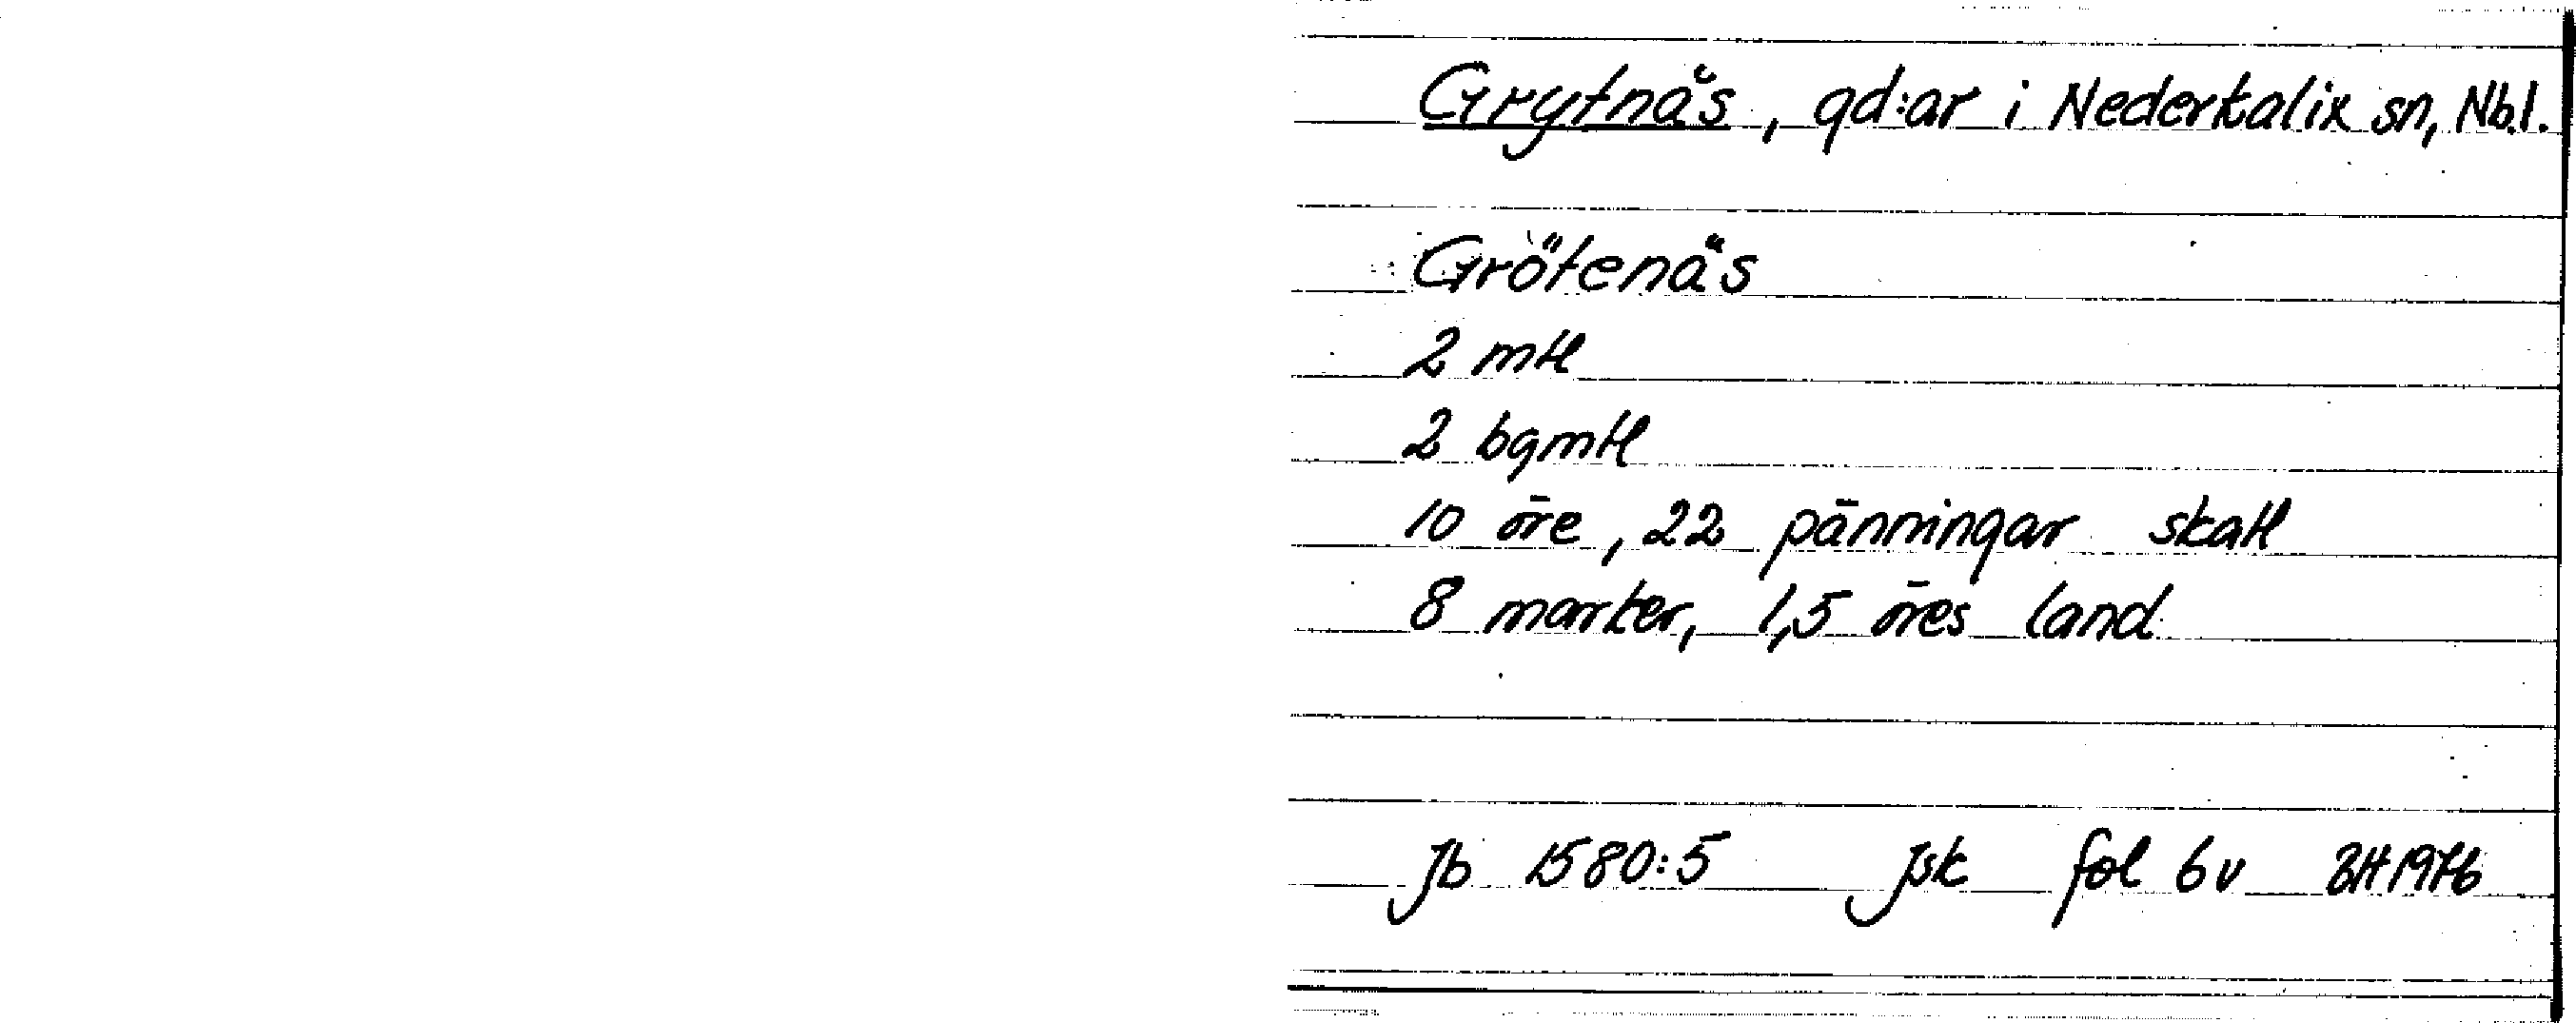 Grytnäs, gd:ar i Nederkalix sn, Nb.l.
Grötenäs
2 mtl
2 bgmtl
10 öre, 22 pänningar skatt
8 marker, 1,5 öres land
Jb 1580:5 jsk fol 6v BH 1976